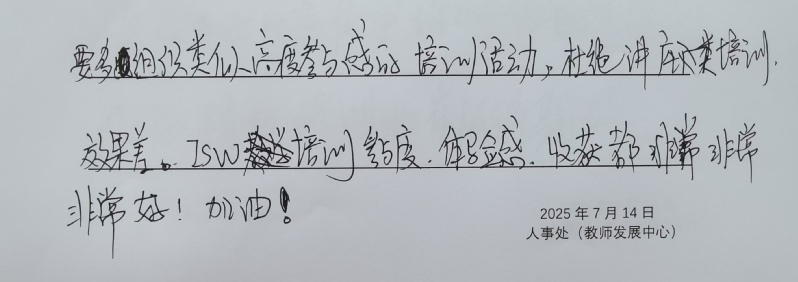 要多组织类似高度参与感的培训活动，杜绝讲座类培训.
效果差。ISW培训参与度.体验感.收获都非常非常
非常好！加油！
2025年7月14日
人事处（教师发展中心）